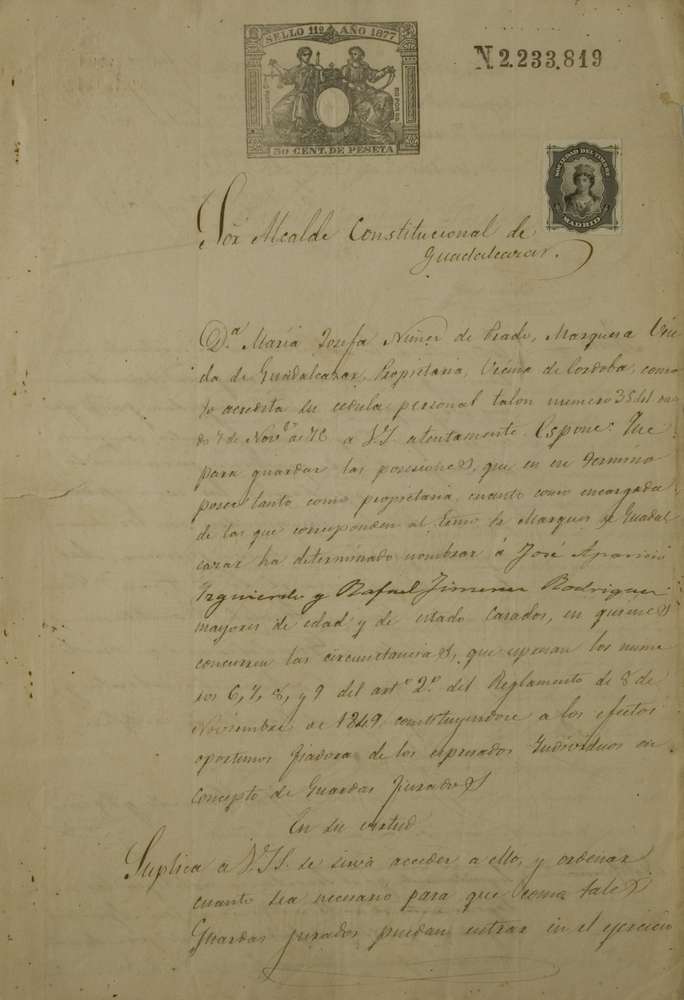 SELLO 11º AÑO 1877
50 CENT. DE PESETA
N2.233.819
SOCIEDAD DEL TIMBRE
MADRID
Sor Alcalde Constitucional de
Guadalcazar.
D.ª María Josefa Nuñez de Prado, Marquesa Viu
da de Guadalcazar, Propietaria, Vecina de Cordoba, como
lo acredita su cedula personal talon numero 35 del
de 7 de Novbre de 76 a V.S. atentamente Espone: Que
para guardar las posesiones, que en ese termino
posee tanto como propietaria, cuanto como encargada
de las que corresponden al Exmo Sr Marques de Guadal
cazar ha determinado nombrar á José Aparicio
Izquierdo y Rafael Jimenez Rodriguez
mayores de edad y de estado casados, en quienes
concurren las circunstancias, que espresan los nume
ros 6, 7, 8, y 9 del artº 2º del Reglamento de 8 de
Noviembre de 1849 constituyendose a los efectos
oportunos fiadora de los espresados Individuos en
concepto de Guardas Jurados
En su virtud
Suplica a V.S. se sirva acceder a ello, y ordenar
cuanto sea necesario para que como tales
Guardas jurados puedan entrar en el ejercicio